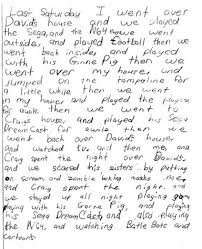 Last Saturday I went over
David's house and we played
the Sega, and the N64 we went
outside, and played football then we
went back inside and played
with his Ginne Pig then we
went over my house, and
jumped on the trampoline for
a little while then we went
in my house and played the
for awile then we went to
Craig house, and played his Sega
Dream Cast for awile then we
went back over Davids house,
and watched t.v. and then me, and
Craig spent the night over Davids.
and we scared his sisters by putting
on Scream and zombie looking masks
and Craig spent the night. and
we stayed up all night playing
playing with his Ginne Pig, and played
his Sega DreamCast, and also playing
the N64, and watching Battle Bots and
cartoons